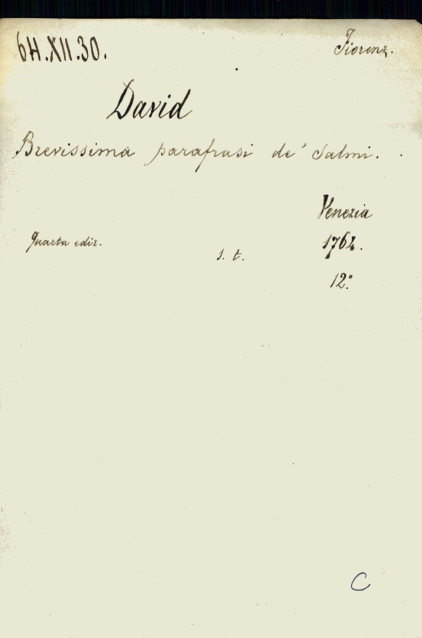 64.XII.30. Fiorenz.
David
Brevissima parafrasi de' Salmi.
Venezia
Quarta ediz. s. t. 1762.
12°
C